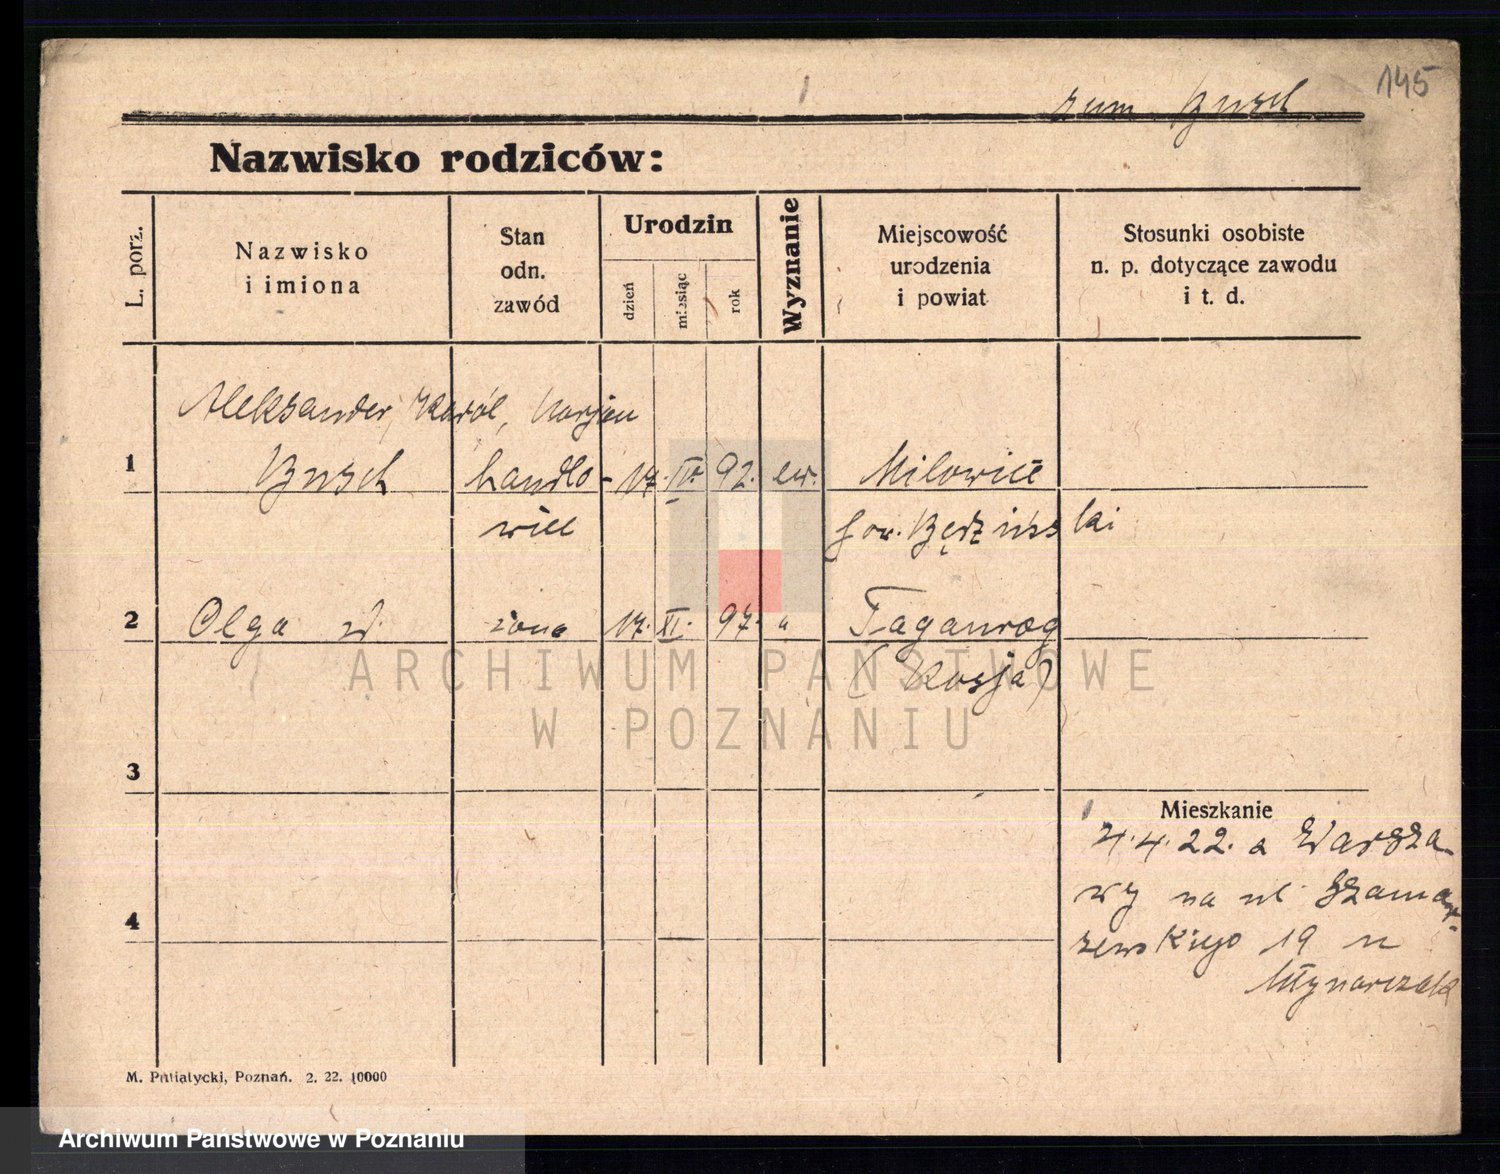 145
zum Busch
Nazwisko rodziców:
L. porz.
Nazwisko
i imiona
Stan
odn.
zawód
Urodzin
dzień
miesiąc
rok
Wyznanie
Miejscowość
urodzenia
i powiat
Stosunki osobiste
n. p. dotyczące zawodu
i t. d.
Aleksander, Karól, Marjan
1 Busch handlo- 17. IV. 92. ew. Milowice
wiec pow. Będziński
2 Olga żona 17. XI. 97. " Taganrog
(Rosja)
3
Mieszkanie
4.4.22. z Warsza-
wy na ul. Szamar-
4
zewskiego 19 u
Młynarczak
M. Putiatycki, Poznań. 2. 22. 10000
ARCHIWUM PAŃSTWOWE
W POZNANIU
Archiwum Państwowe w Poznaniu